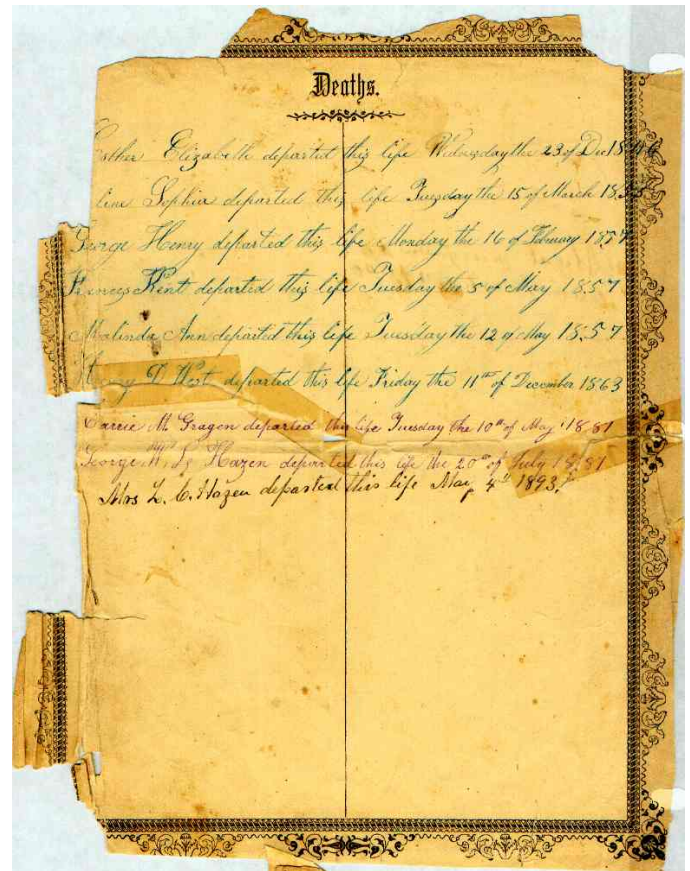 Deaths.
Esther Elizabeth departed this life Wednesday the 23 of Dec 1846
line Sophia departed this life Tuesday the 15 of March 1853
George Henry departed this life Monday the 16 of February 1857
Kent departed this life Tuesday the 5 of May 1857
Malinda Ann departed this life Tuesday the 12 of May 1857
Henry D West departed this life Friday the 11th of December 1863
Carrie M Gragon departed this life Tuesday the 10th of May 1881
George Hazen departed this life the 20th of July 1881
Mrs L. C. Hazen departed this life May 4th 1893.